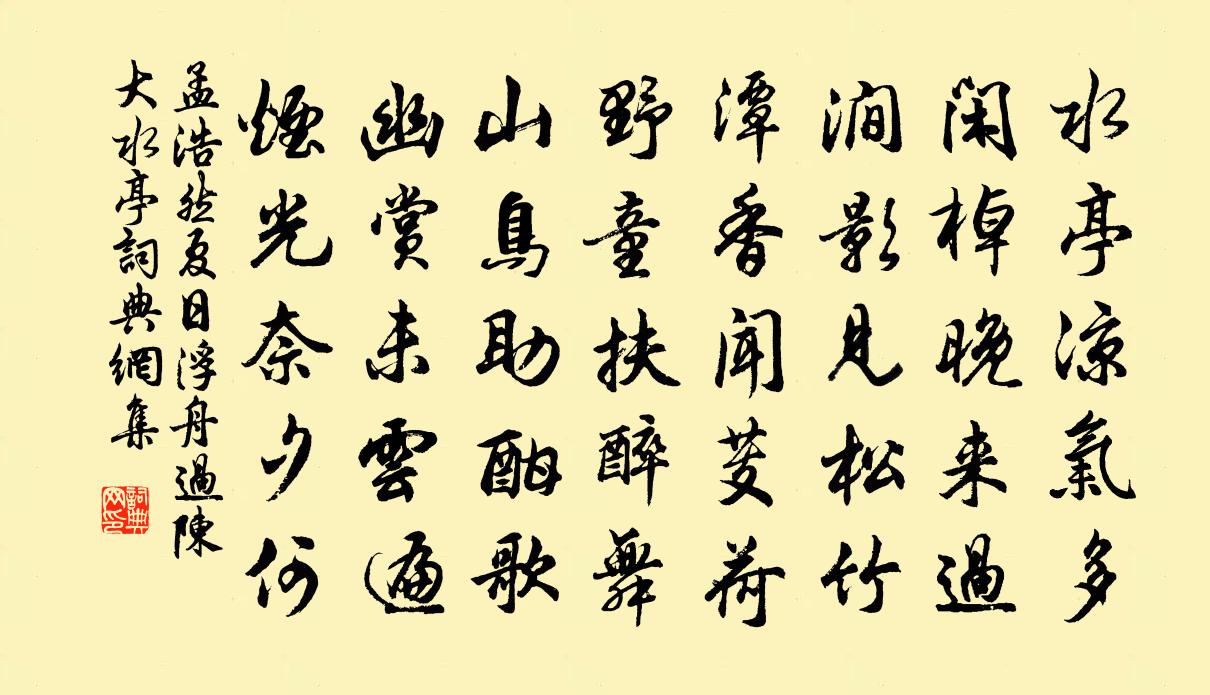 水亭涼氣多
閑棹晚来過
澗影見松竹
潭香聞芰荷
野童扶醉舞
山鳥助酣歌
幽賞未雲遍
煙光奈夕何
孟浩然夏日浮舟過陳
大水亭詞典網集
詞典
网印